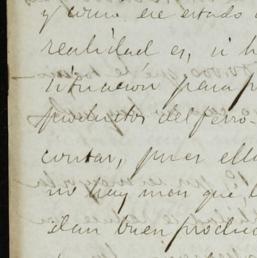 y como ese estado
realidad es, si h
situación para p
productos del ferro-
contar, pues ell
no hay mas que l
dan buen produc